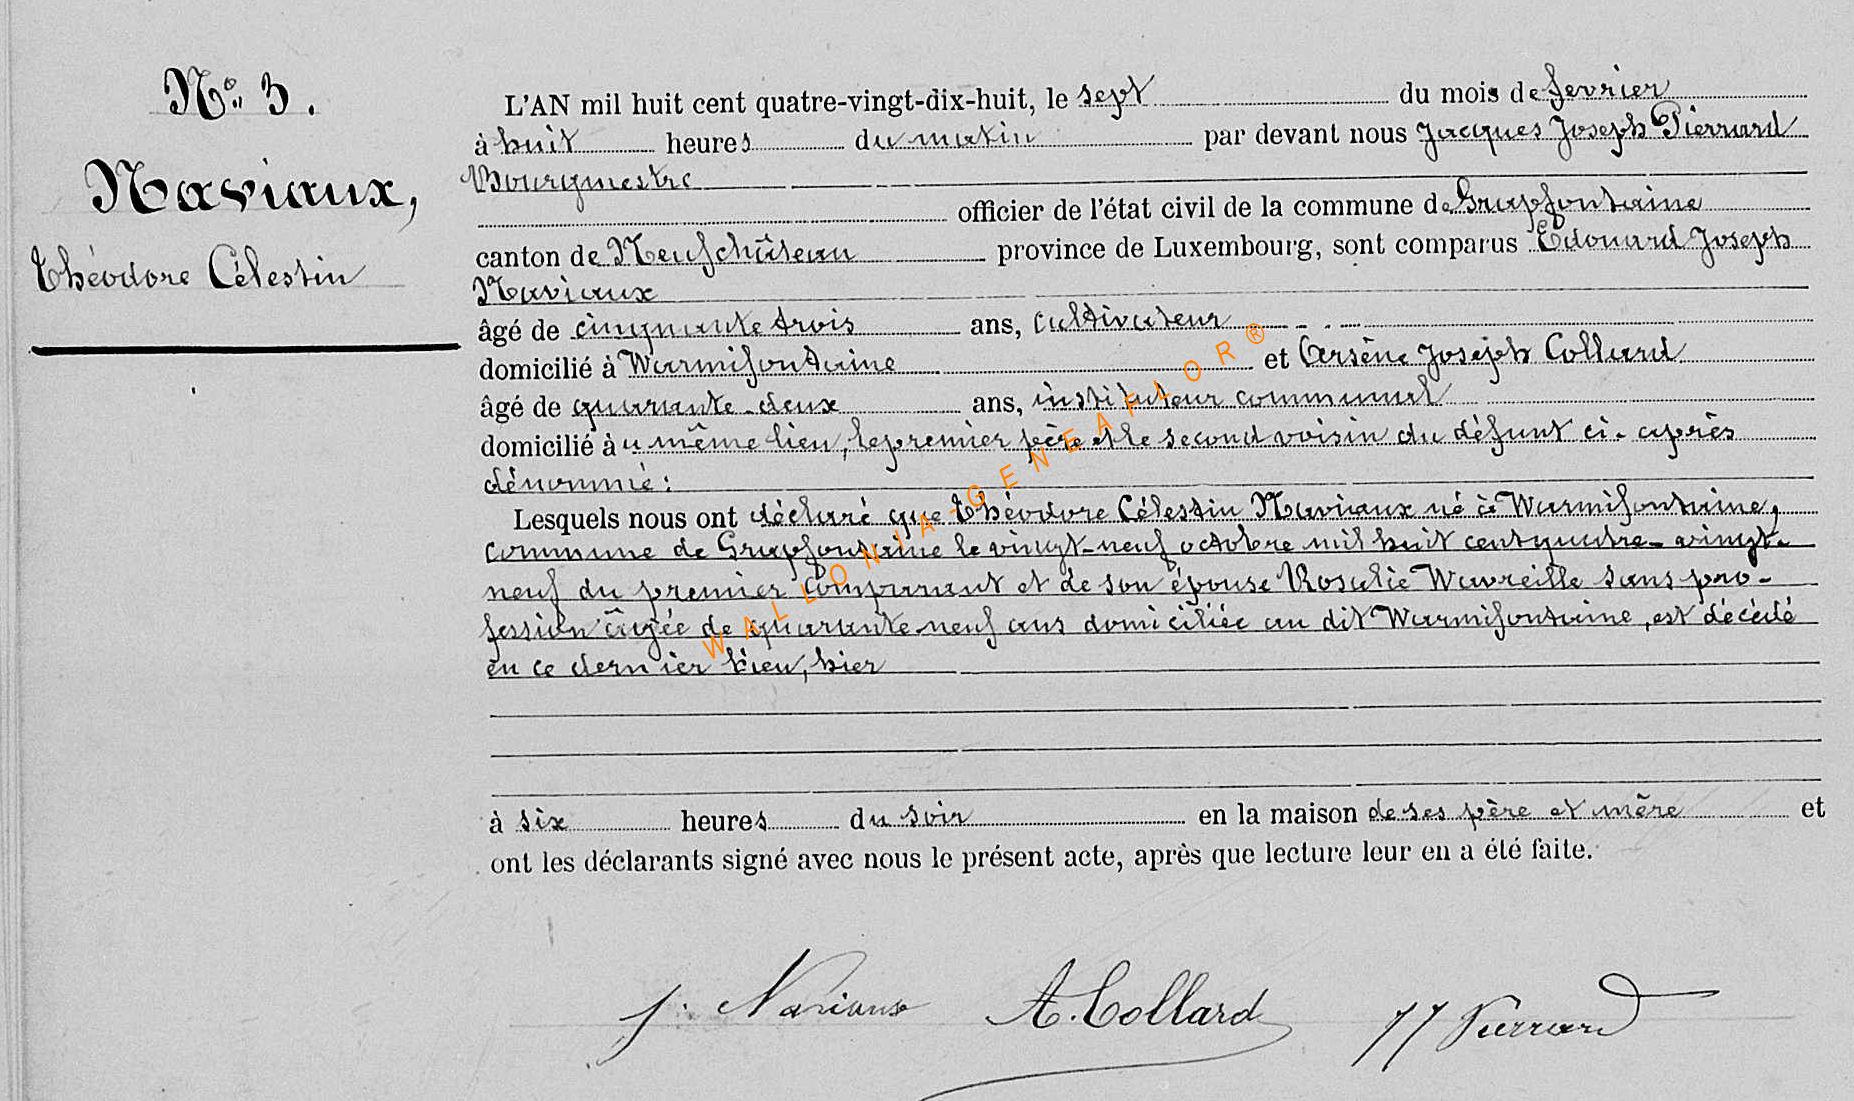 N° 3.
Naviaux,
Théodore Célestin
L'AN mil huit cent quatre-vingt-dix-huit, le sept du mois de fevrier
à huit heures du matin par devant nous Jacques Joseph Pierrard
Bourgmestre
officier de l'état civil de la commune de Grapfontaine
canton de Neufchâteau province de Luxembourg, sont comparus Edouard Joseph
Naviaux
âgé de cinquante trois ans, cultivateur
domicilié à Warmifontaine et Arsène Joseph Collard
âgé de quarante-deux ans, instituteur communal
domicilié au même lieu, le premier père et le second voisin du défunt ci-après
dénommé:
Lesquels nous ont déclaré que Théodore Célestin Naviaux né à Warmifontaine,
commune de Grapfontaine le vingt-neuf octobre mil huit cent quatre-vingt-
neuf du premier comparant et de son épouse Rosalie Wavreille sans pro-
fession âgée de quarante neuf ans domiciliée au dit Warmifontaine, est décédé
en ce dernier lieu, hier
à six heures du soir en la maison de ses père et mère et
ont les déclarants signé avec nous le présent acte, après que lecture leur en a été faite.
J. Naviaux A. Collard JJ Pierrard
WALLONIA-GENEAFLOR®